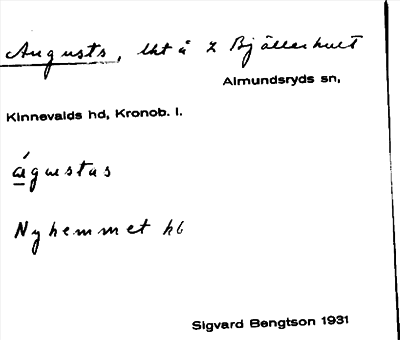 Augusts, lht å Z Bjällerhult
Almundsryds sn,
Kinnevalds hd, Kronob. l.
águstas
Nyhemmet hb
Sigvard Bengtson 1931